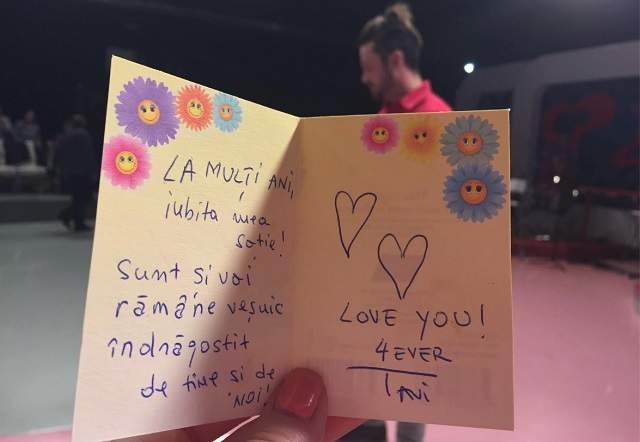 LA MULȚI ANI,
iubita mea
soție!
Sunt si voi
rămâne veșnic
îndrăgostit
de tine si de
NOI!
LOVE YOU!
4EVER
1 ANI